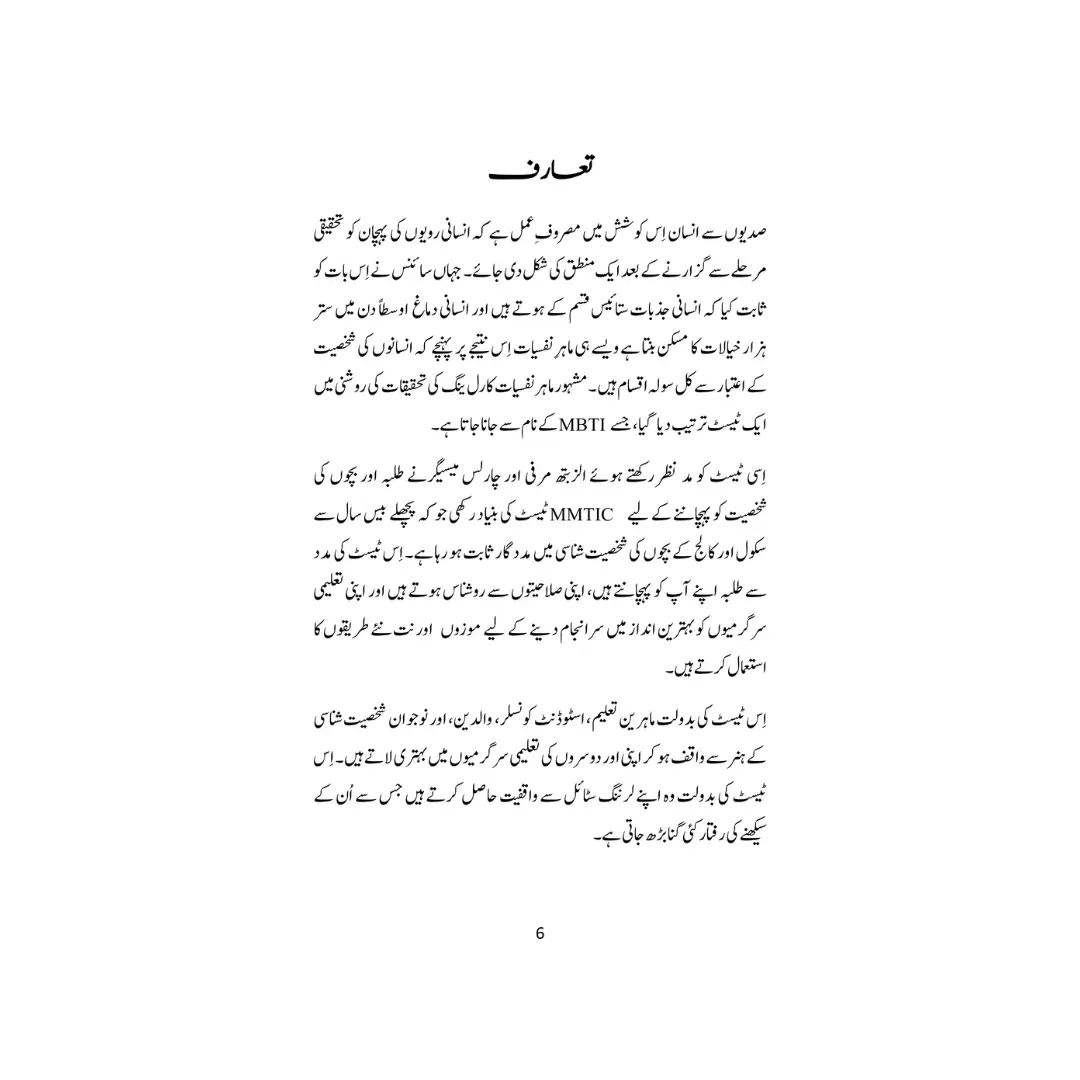 تعارف
صدیوں سے انسان اِس کوشش میں مصروفِ عمل ہے کہ انسانی رویوں کی پہچان کو تحقیقی
مرحلے سے گزارنے کے بعد ایک منطق کی شکل دی جائے۔ جہاں سائنس نے اِس بات کو
ثابت کیا کہ انسانی جذبات ستائیس قسم کے ہوتے ہیں اور انسانی دماغ اوسطاً دن میں ستر
ہزار خیالات کا مسکن بنتا ہے ویسے ہی ماہرِ نفسیات اِس نتیجے پر پہنچے کہ انسانوں کی شخصیت
کے اعتبار سے کل سولہ اقسام ہیں۔ مشہور ماہر نفسیات کارل ینگ کی تحقیقات کی روشنی میں
ایک ٹیسٹ ترتیب دیا گیا، جسے MBTI کے نام سے جانا جاتا ہے۔
اِسی ٹیسٹ کو مد نظر رکھتے ہوئے الزبتھ مرفی اور چارلس میسیگر نے طلبہ اور بچوں کی
شخصیت کو پہچاننے کے لیے MMTIC ٹیسٹ کی بنیاد رکھی جو کہ پچھلے بیس سال سے
سکول اور کالج کے بچوں کی شخصیت شناسی میں مددگار ثابت ہو رہا ہے۔ اِس ٹیسٹ کی مدد
سے طلبہ اپنے آپ کو پہچانتے ہیں، اپنی صلاحیتوں سے روشناس ہوتے ہیں اور اپنی تعلیمی
سرگرمیوں کو بہترین انداز میں سرانجام دینے کے لیے موزوں اور نت نئے طریقوں کا
استعمال کرتے ہیں۔
اِس ٹیسٹ کی بدولت ماہرین تعلیم، اسٹوڈنٹ کونسلر، والدین، اور نوجوان شخصیت شناسی
کے ہنر سے واقف ہو کر اپنی اور دوسروں کی تعلیمی سرگرمیوں میں بہتری لاتے ہیں۔ اِس
ٹیسٹ کی بدولت وہ اپنے لرننگ سٹائل سے واقفیت حاصل کرتے ہیں جس سے اُن کے
سیکھنے کی رفتار کئی گنا بڑھ جاتی ہے۔
6